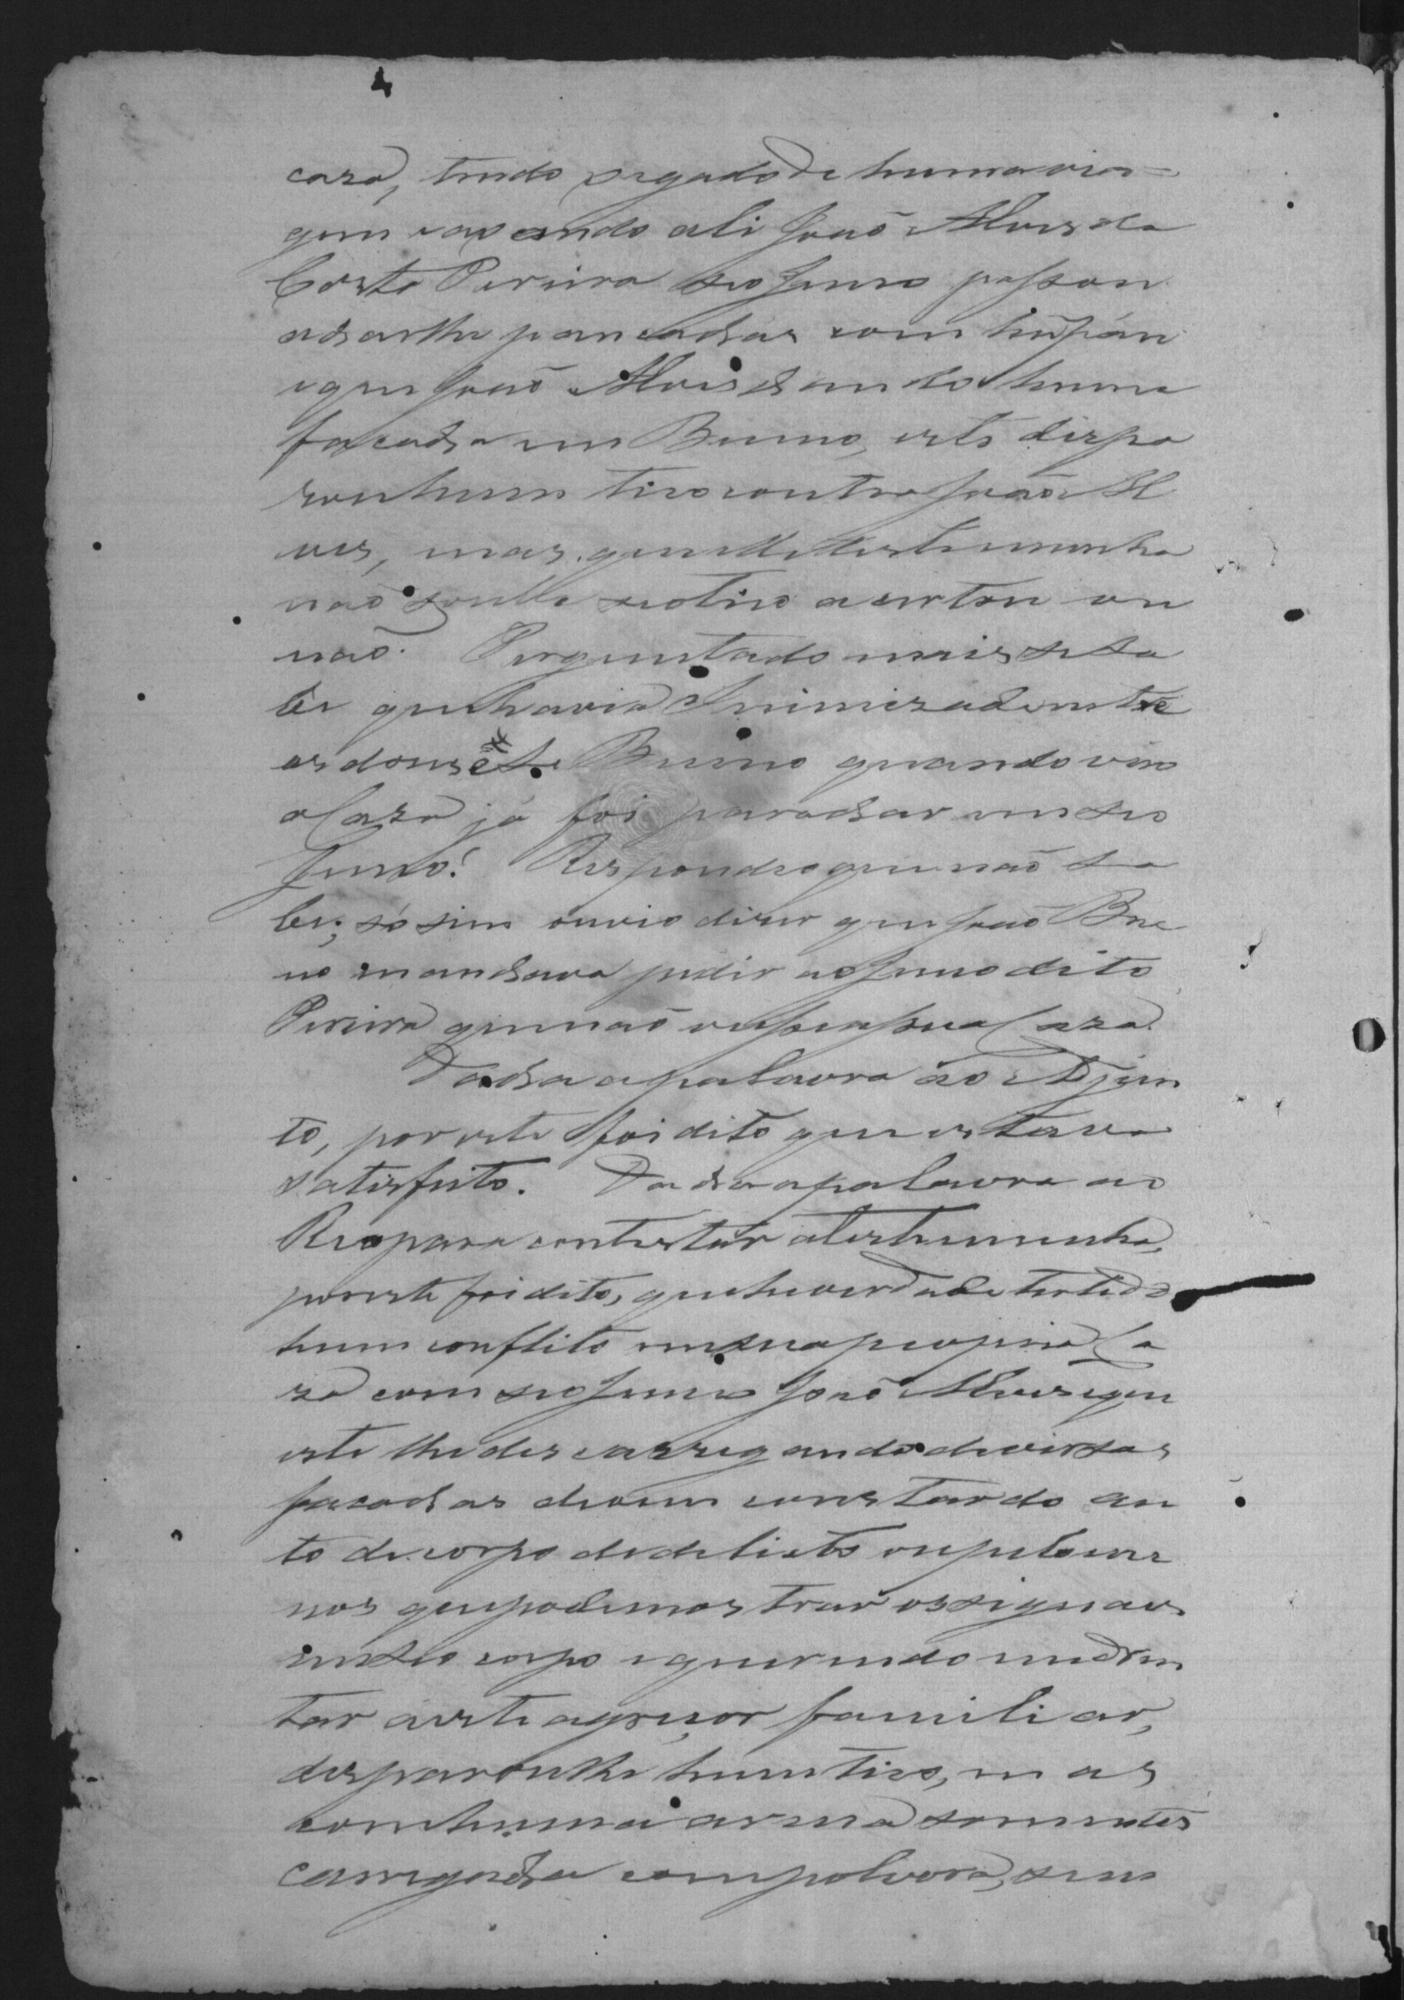 4
caza, tendo xegado de huma via=
gem e axando ali João Alves da
Costa Pereira seo Genro passou
adarlhe pancadas com hũ páu
e que João Alves dando huma
facada em Bueno, este dispa
rou hum tiro contra João Al
ves, mas que elle testemunha
não soube se o tiro acertou ou
não. Perguntado mais se sa
be que havia Inimizade entre
os dous e se Bueno quando veio
a Caza já foi para dar em seo
Genro? Respondeo que não sa
be; só sim ouvio dizer que João Bue
no mandava pedir ao Genro dito
Pereira que não vise a sua Caza.
Dada a palavra ao Adjun
to, por este foi dito que estava
satisfeito. Dada a palavra ao
Reo para contestar a testemunha,
por este foi dito, que he verdade ter tido
hum conflito em sua propria Ca
za com seo Genro João Alves e que
este lhe descarregando diversas
facadas devem constar do au
to de corpo de delicto ou pelo me
nos que pode mostrar os signaes
em seo corpo e querendo amedron
tar a este agressor familiar,
disparoulhe hum tiro, mas
com huma arma somente
carregada com polvora, sem